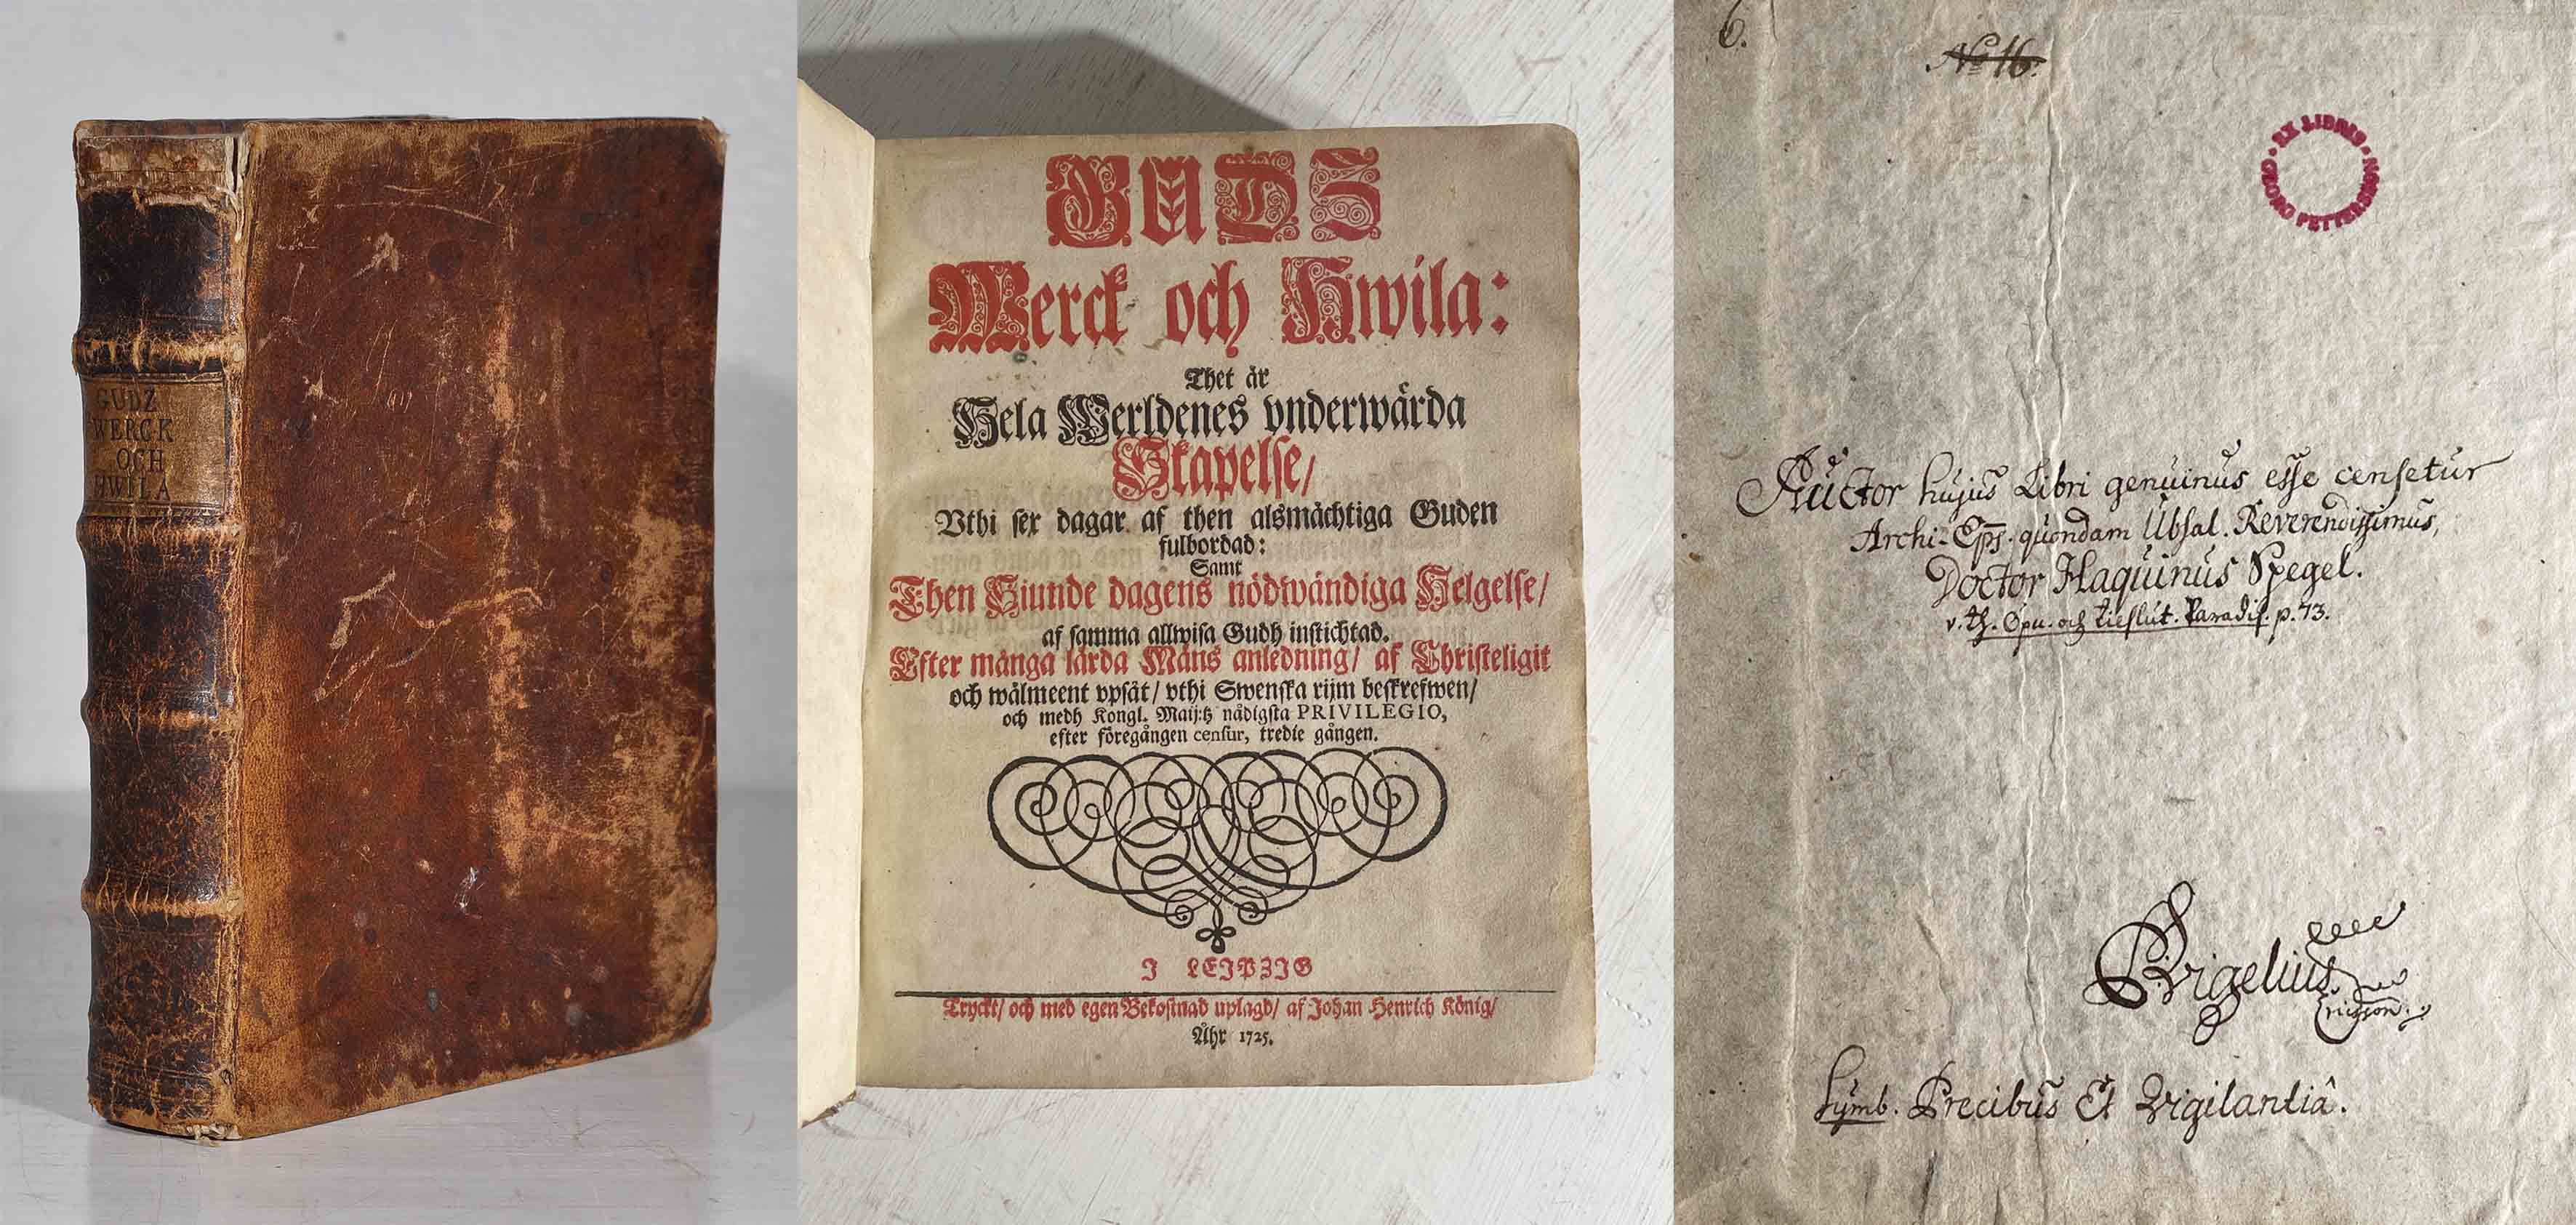 GUDZ
WERCK
OCH
HWILA
GUDS
Werck och Hwila:
Thet är
Hela Werldenes vnderwärda
Skapelse/
Vthi sex dagar af then alsmächtiga Guden
fulbordad:
Samt
Then Siunde dagens nödwändiga Helgelse/
af samma allwisa Gudh instichtad.
Efter många lärda Mäns anledning/ af Christeligit
och wälmeent vpsåt/ vthi Swenska rijm beskrefwen/
och medh Kongl. Maij:tz nådigsta PRIVILEGIO,
efter föregången censur, tredie gången.
J LEJPZJG
Tryckt/ och med egen Bekostnad uplagd/ af Johan Henrich König/
Åhr 1725.
6.
No 16.
EX LIBRIS
GEORG PETTERSSON
Auctor hujus Libri genuinus esse censetur
Archi-Eps. quondam Ubsal. Reverendissimus,
Doctor Haquinus Spegel.
v. th. Öpn. och tieslut. Paradis. p. 73.
Vigelius
Symb. Precibus Et Vigilantiâ.